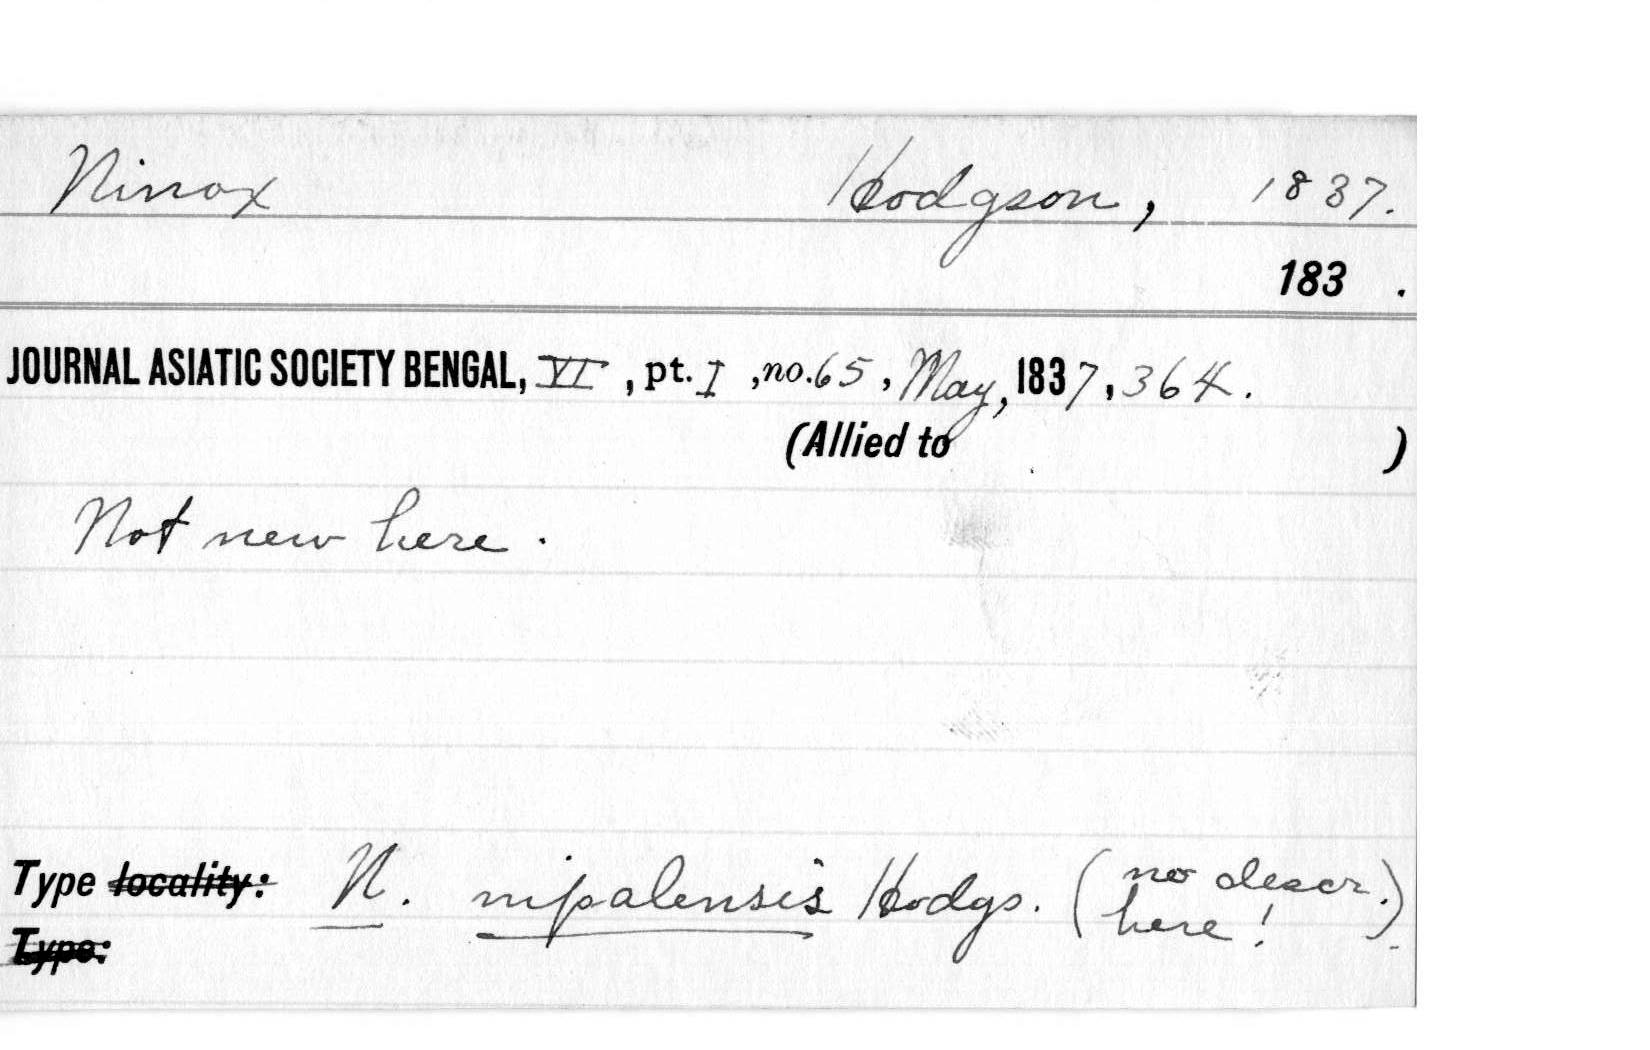 Ninox Hodgson, 1837.
183 .
JOURNAL ASIATIC SOCIETY BENGAL, VI, pt. I, no. 65, May, 1837, 364.
(Allied to )
Not new here.
Type locality: N. nipalensis Hodgs. (no descr. here!).
Type: